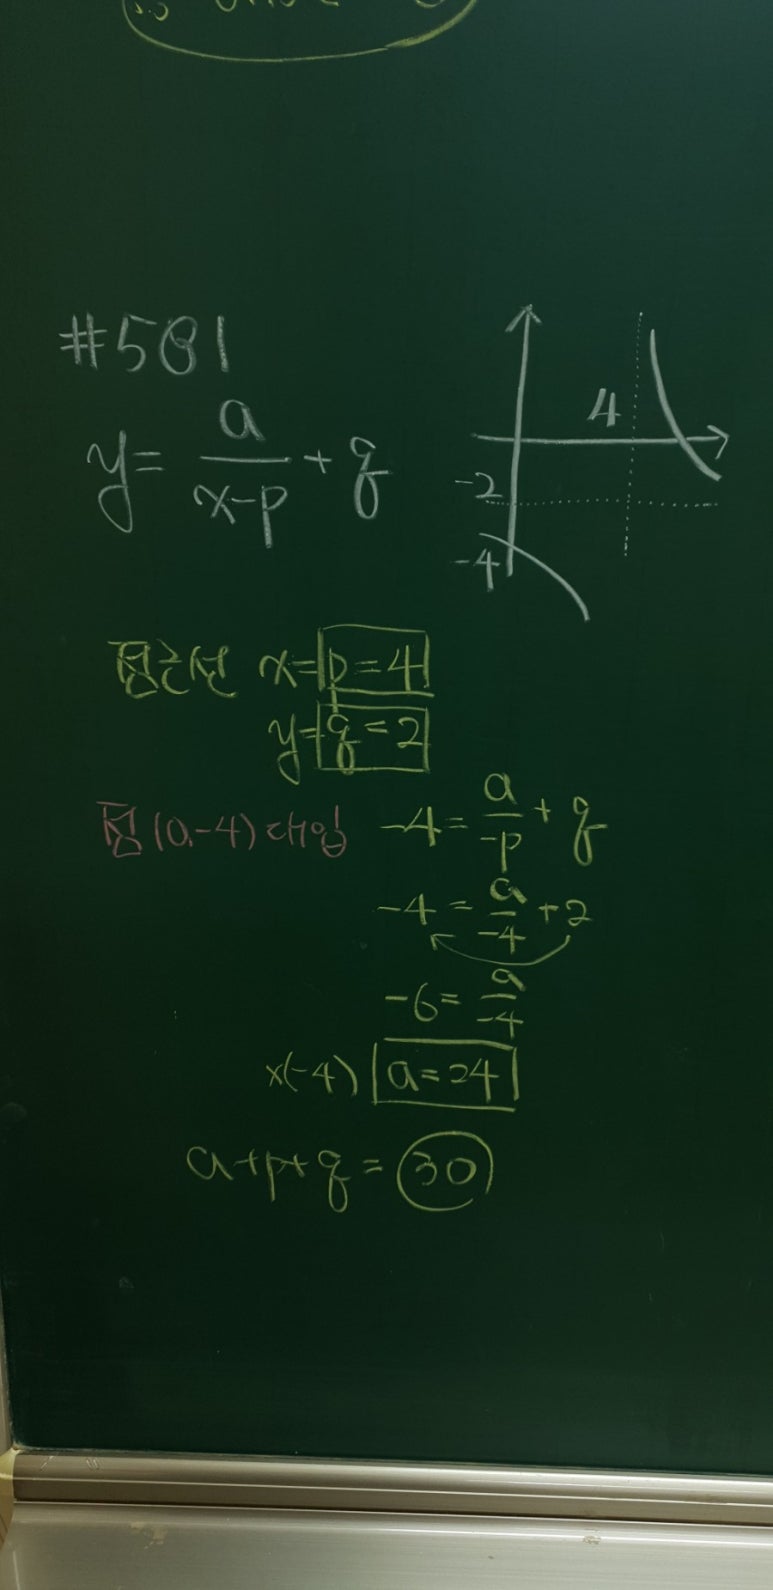 #581
y = a/(x-p) + q
4
-2
-4
점근선 x = p = 4
y = q = 2
점 (0, -4) 대입 -4 = a/-p + q
-4 = a/-4 + 2
-6 = a/-4
x(-4) a = 24
a+p+q = 30